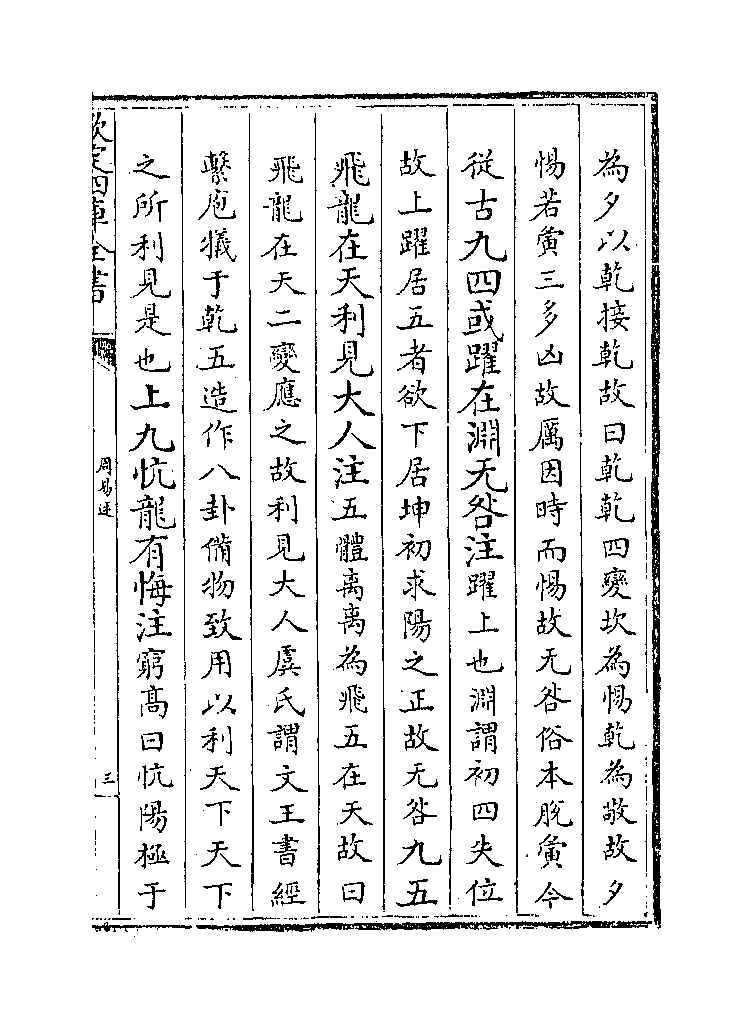 為夕以乾接乾故曰乾乾四變坎為惕乾為敬故夕
惕若夤三多凶故厲因時而惕故无咎俗本脫夤今
從古九四或躍在淵无咎注躍上也淵謂初四失位
故上躍居五者欲下居坤初求陽之正故无咎九五
飛龍在天利見大人注五體离离為飛五在天故曰
飛龍在天二變應之故利見大人虞氏謂文王書經
繫庖犧于乾五造作八卦備物致用以利天下天下
之所利見是也上九忼龍有悔注窮高曰忼陽極于
欽定四庫全書
周易述
三